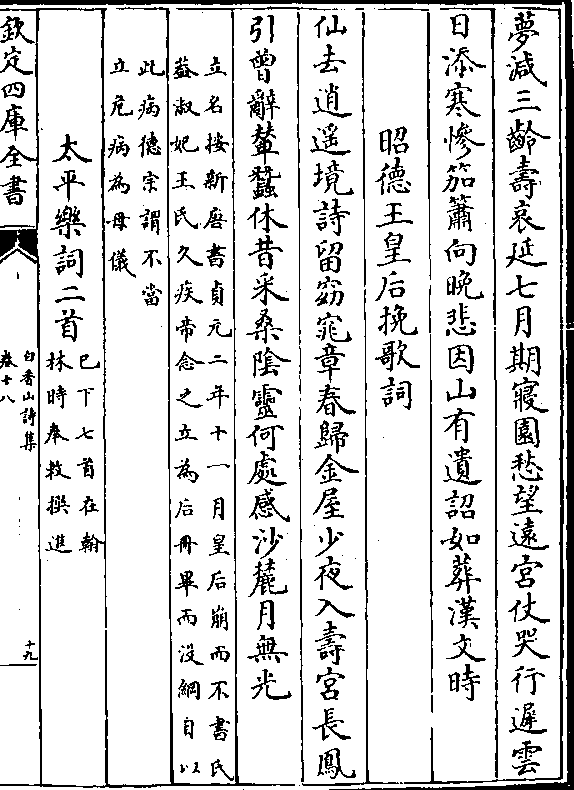 夢減三齡壽哀延七月期寢園愁望遠宮仗哭行遲雲
日添寒慘笳簫向晚悲因山有遺詔如葬漢文時
昭德王皇后挽歌詞
仙去逍遙境詩留窈窕章春歸金屋少夜入壽宮長鳳
引曾辭輦蠶休昔采桑陰靈何處感沙麓月無光
立名按新唐書貞元二年十一月皇后崩而不書氏
葢淑妃王氏久疾帝念之立為后冊畢而沒綱目以
此病德宗謂不當
立危病為母儀
太平樂詞二首
已下七首在翰
林時奉敕撰進
欽定四庫全書
白香山詩集
卷十八
十九